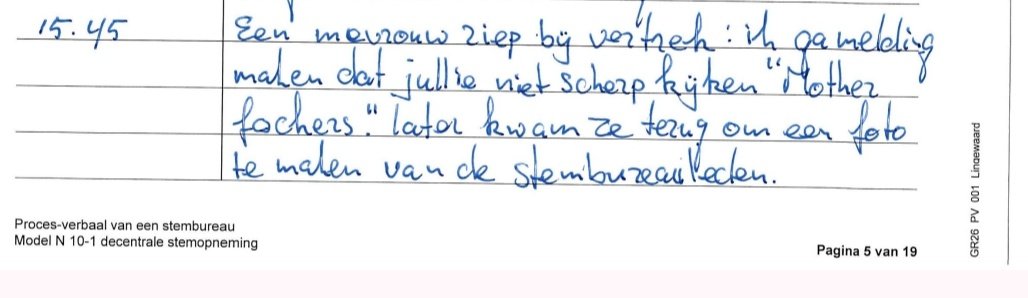 15.45 Een mevrouw riep bij vertrek: ik ga melding
maken dat jullie niet scherp kijken "Mother
fochers." later kwam ze terug om een foto
te maken van de stembureauleden.
Proces-verbaal van een stembureau
Model N 10-1 decentrale stemopneming
Pagina 5 van 19
GR26 PV 001 Linoewaard